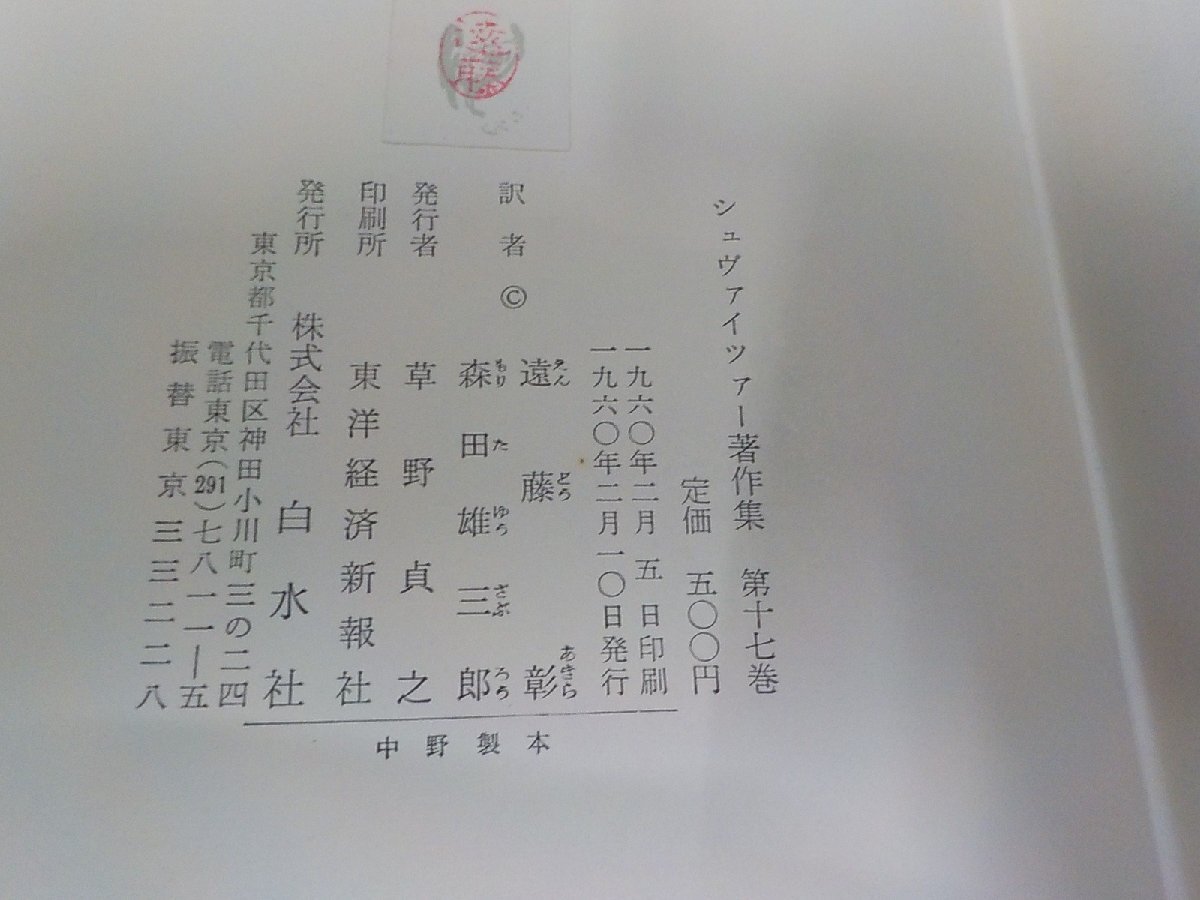 シュヴァイツァー著作集 第十七巻
定価 五〇〇円
一九六〇年二月 五 日印刷
一九六〇年二月一〇日発行
訳者 ©
遠藤 彰
えん どう あきら
森田雄三郎
もり た ゆう ざぶ ろう
発行者 草野貞之
印刷所 東洋経済新報社
発行所 株式会社 白水社
東京都千代田区神田小川町三の二四
電話東京(291)七八一一―五
振替東京三三二二八
中野製本